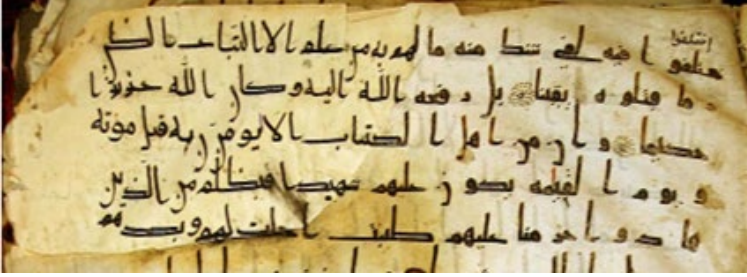 اختلفوا
ختلفوا فيه لفي شك منه ما لهم به من علم الا اتباع الظن
و ما قتلوه يقينا بل رفعه الله اليه وكان الله عزيزا
حكيما وان من اهل الكتاب الا ليومنن به قبل موته
ويوم القيمه يكون عليهم شهيدا فبظلم من الذين
هادوا حرمنا عليهم طيبت احلت لهم وبصدهم